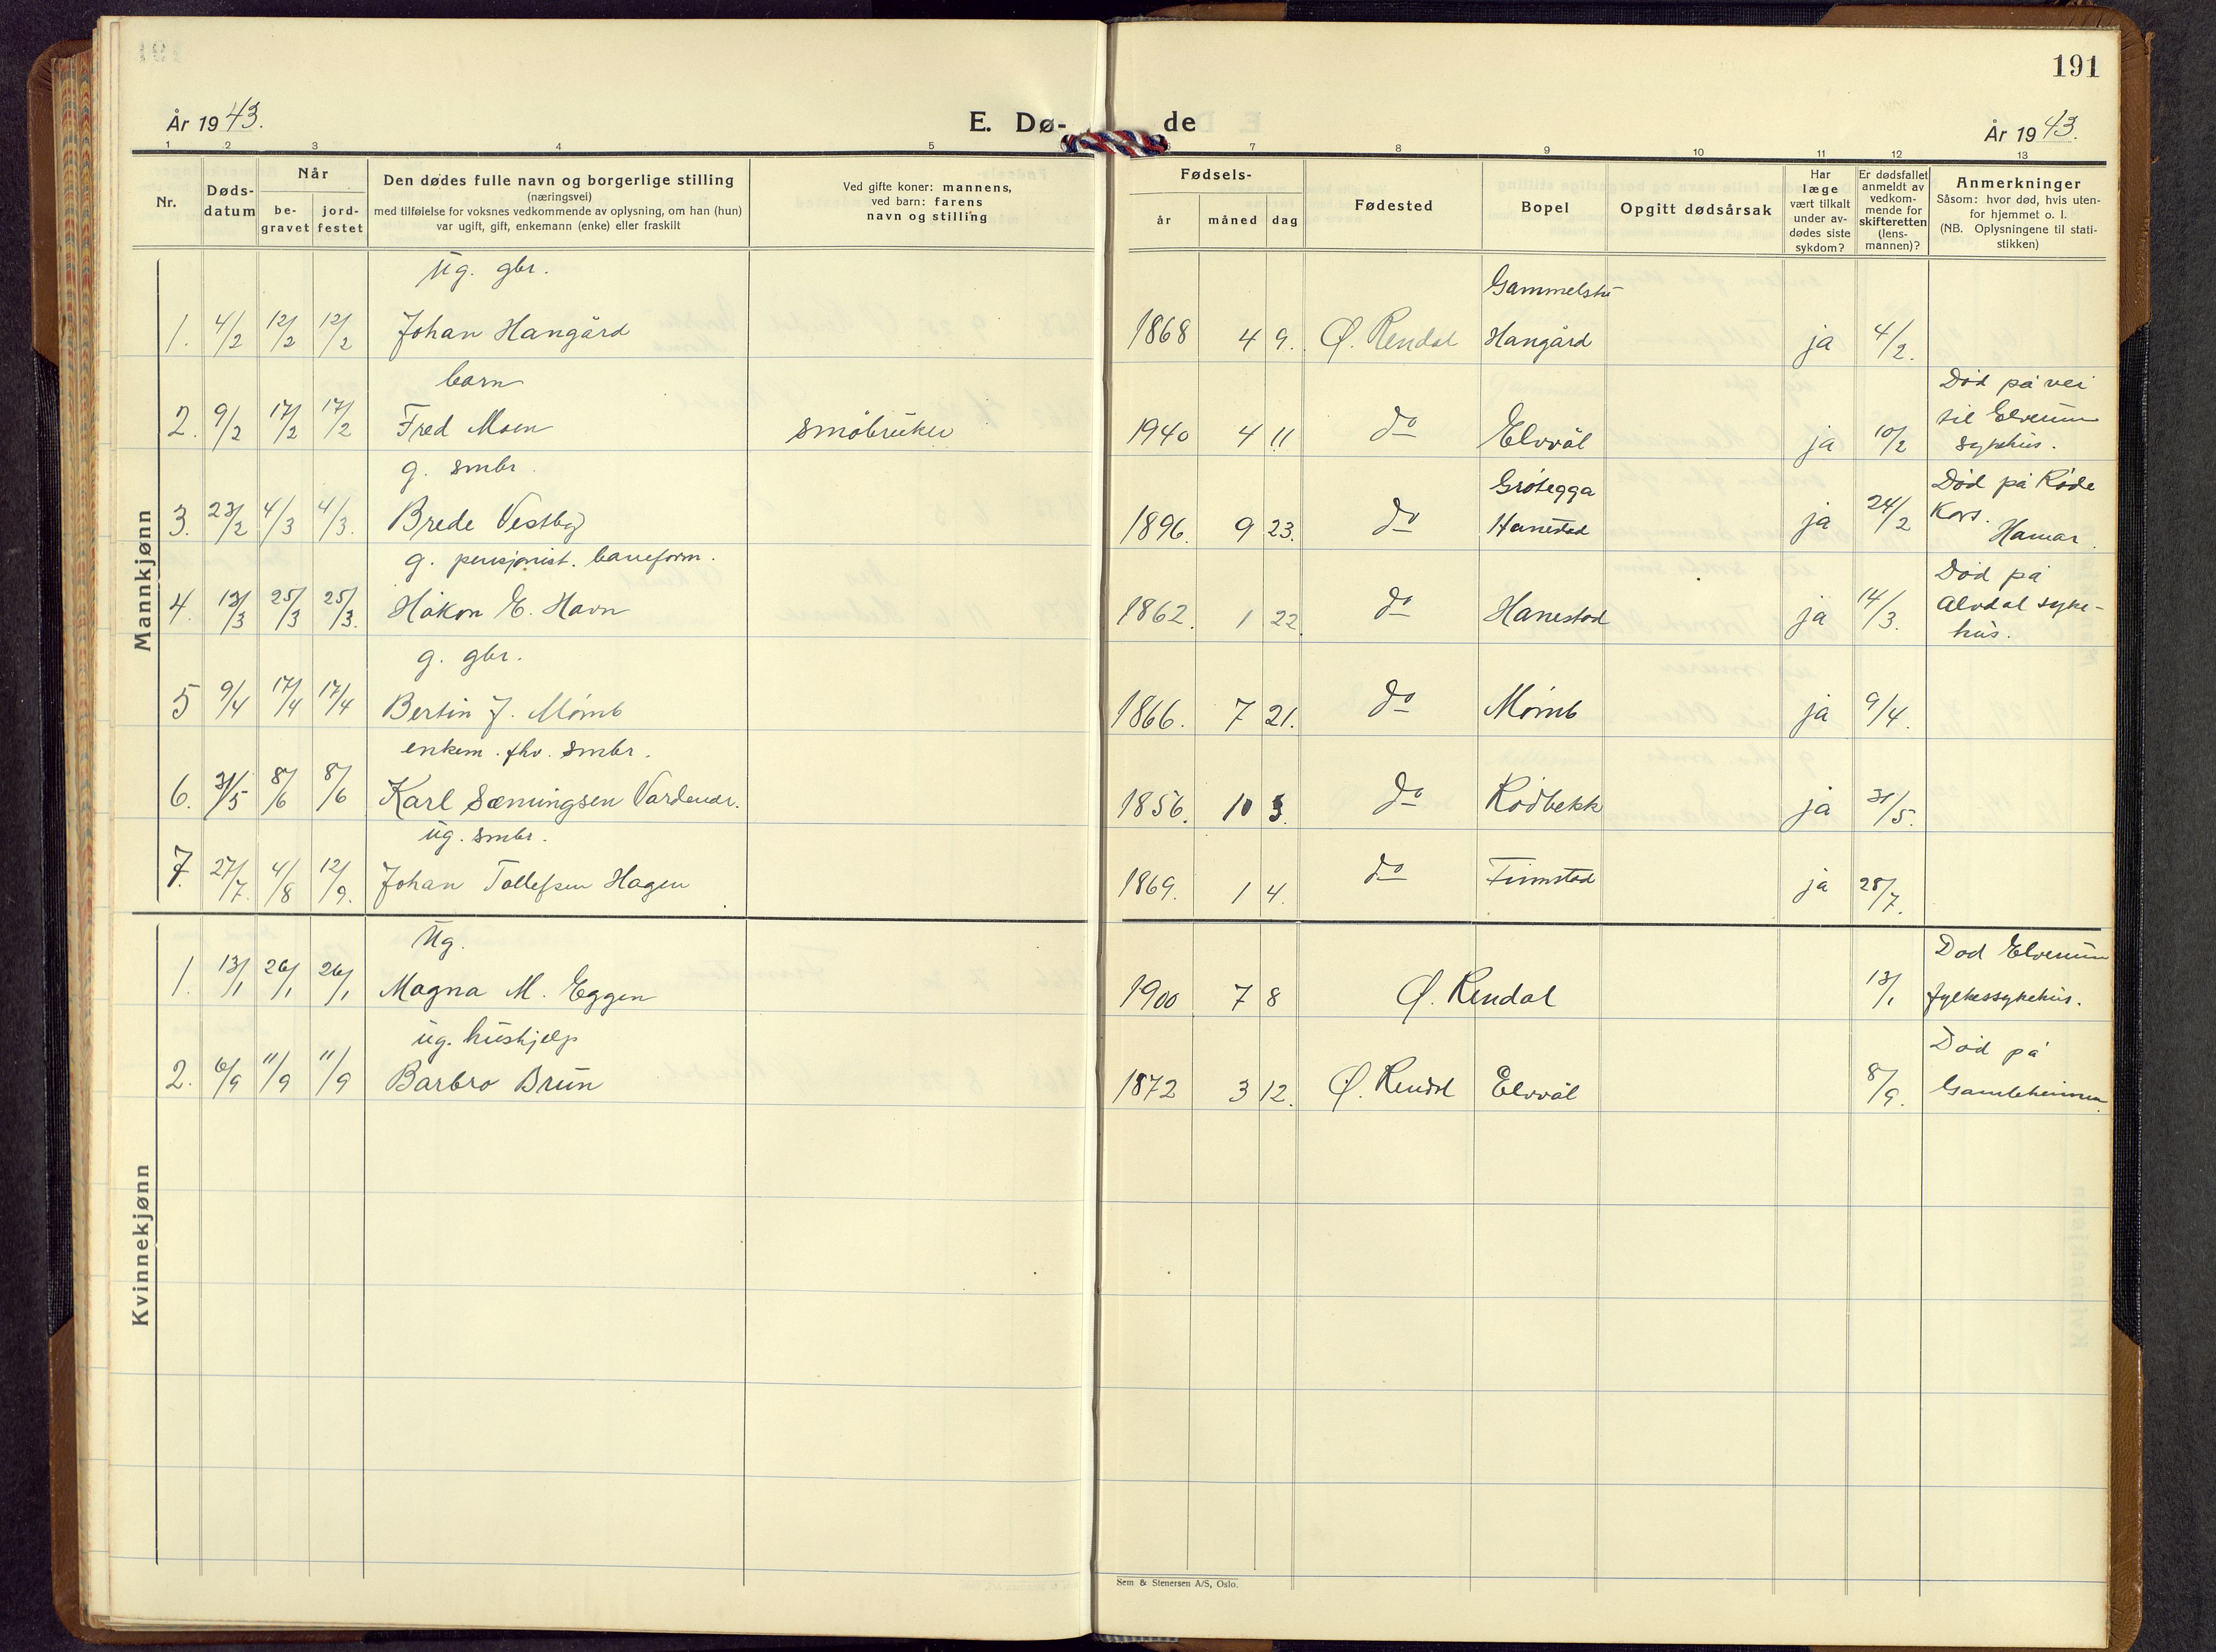 191
År 1943.
E. Dø-
de
År 1943.
1 2 3 4 5 6 7 8 9 10 11 12 13
Nr.
Døds-
datum
Når
be-
gravet
jord-
festet
Den dødes fulle navn og borgerlige stilling
(næringsvei)
med tilføielse for voksnes vedkommende av oplysning, om han (hun)
var ugift, gift, enkemann (enke) eller fraskilt
Ved gifte koner: mannens,
ved barn: farens
navn og stilling
Fødsels-
år
måned
dag
Fødested
Bopel
Opgitt dødsårsak
Har
læge
vært tilkalt
under av-
dødes siste
sykdom?
Er dødsfallet
anmeldt av
vedkom-
mende for
skifteretten
(lens-
mannen)?
Anmerkninger
Såsom: hvor død, hvis uten-
for hjemmet o. l.
(NB. Oplysningene til stati-
stikken)
Mannkjønn
ug. gbr.
Gammelstu
1. 4/2 12/2 12/2 Johan Hangård 1868 4 9. Ø. Rendal Hangård ja 4/2.
barn
Død på vei
2. 9/2 17/2 17/2 Fred Moen småbruker 1940 4 11 do Elvål ja 10/2 til Elverum
sykehus.
g. smbr.
Grøtegga
Død på Røde
3. 23/2 4/3 4/3. Brede Vestby 1896. 9 23. do Hanestad ja 24/2 Kors.
Hamar.
g. pensjonist. baneform.
Død på
4. 13/3 25/3 25/3. Håkon E. Havn 1862. 1 22. do Hanestad ja 14/3. Alvdal syke-
hus.
g. gbr.
5 9/4 17/4 17/4 Bertin J. Mømb 1866. 7 21. do Mømb ja 9/4.
enkem. fhv. smbr.
6. 31/5 8/6 8/6 Karl Sæmingsen 1856. 10 3. do Rødbekk ja 31/5.
ug. smbr.
7. 27/7. 4/8 12/9. Johan Tollefsen Hagen 1869. 1 4. do Finnstad ja 28/7.
Kvinnekjønn
Ug.
Død Elverum
1. 13/1 26/1 26/1 Magna M. Eggen 1900 7 8 Ø. Rendal 13/1 fylkessykehus.
ug. hushjelp
Død på
2. 6/9 11/9 11/9 Barbro Brun 1872 3 12. Ø. Rendal Elvål 8/9. Gamleheimen.
Sem & Stenersen A/S, Oslo.